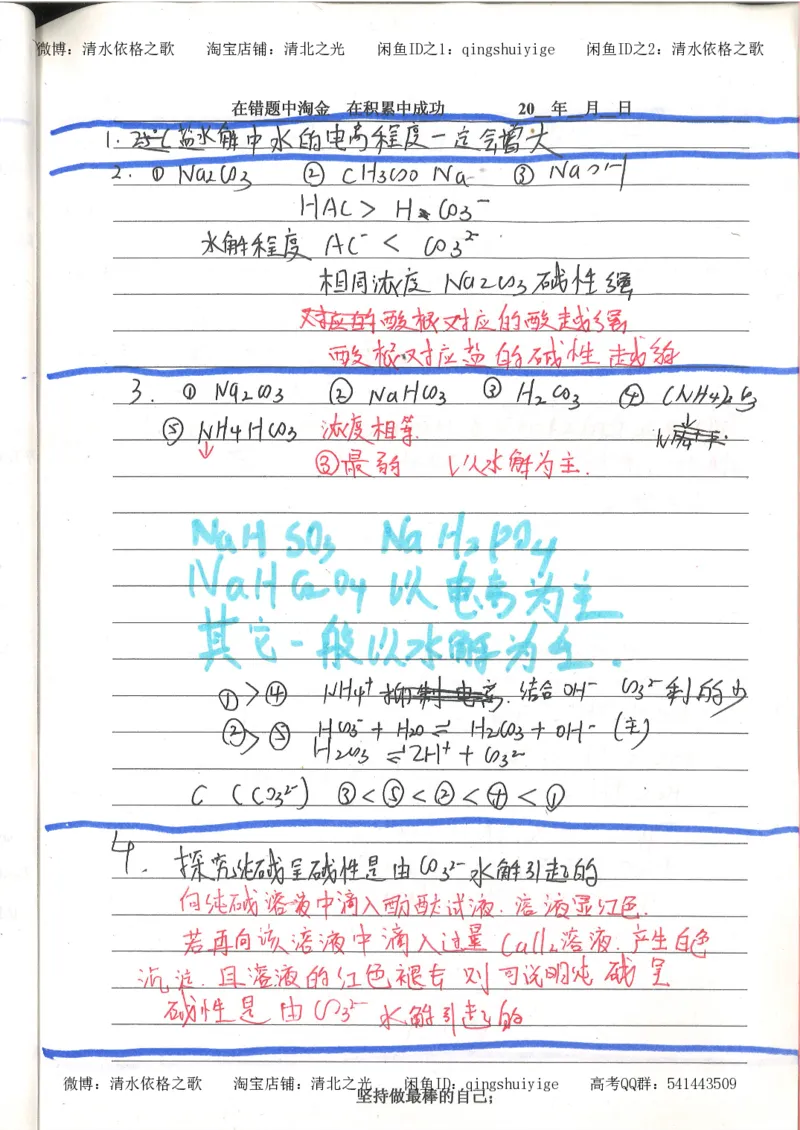 微博：清水依格之歌 淘宝店铺：清北之光 闲鱼ID之1：qingshuiyige 闲鱼ID之2：清水依格之歌
在错题中淘金 在积累中成功 20 年 月 日
1. 25℃盐水解中水的电离程度一定会增大
2. ① Na2CO3 ② CH3COONa ③ NaOH
HAC > HCO3⁻
水解程度 AC⁻ < CO3²⁻
相同浓度 Na2CO3碱性强
对应的酸根对应的酸越强
酸根对应盐的碱性越弱
3. ① Na2CO3 ② NaHCO3 ③ H2CO3 ④ (NH4)2CO3
⑤ NH4HCO3 浓度相等
↓ ③最弱 以水解为主.
NaHSO3 NaH2PO4
NaHC2O4 以电离为主
其它一般以水解为主.
①>④ NH4⁺ 抑制电离. 结合OH⁻ CO3²⁻剩的少
②>⑤ HCO3⁻ + H2O ⇌ H2CO3 + OH⁻ (主)
H2CO3 ⇌ 2H⁺ + CO3²⁻
C (CO3²⁻) ③<⑤<②<④<①
4. 探究纯碱呈碱性是由CO3²⁻水解引起的
向纯碱溶液中滴入酚酞试液.溶液显红色.
若再向该溶液中滴入过量CaCl2溶液.产生白色
沉淀.且溶液的红色褪去则可说明纯碱呈
碱性是由CO3²⁻水解引起的
微博：清水依格之歌 淘宝店铺：清北之光 闲鱼ID：qingshuiyige 高考QQ群：541443509
坚持做最棒的自己；